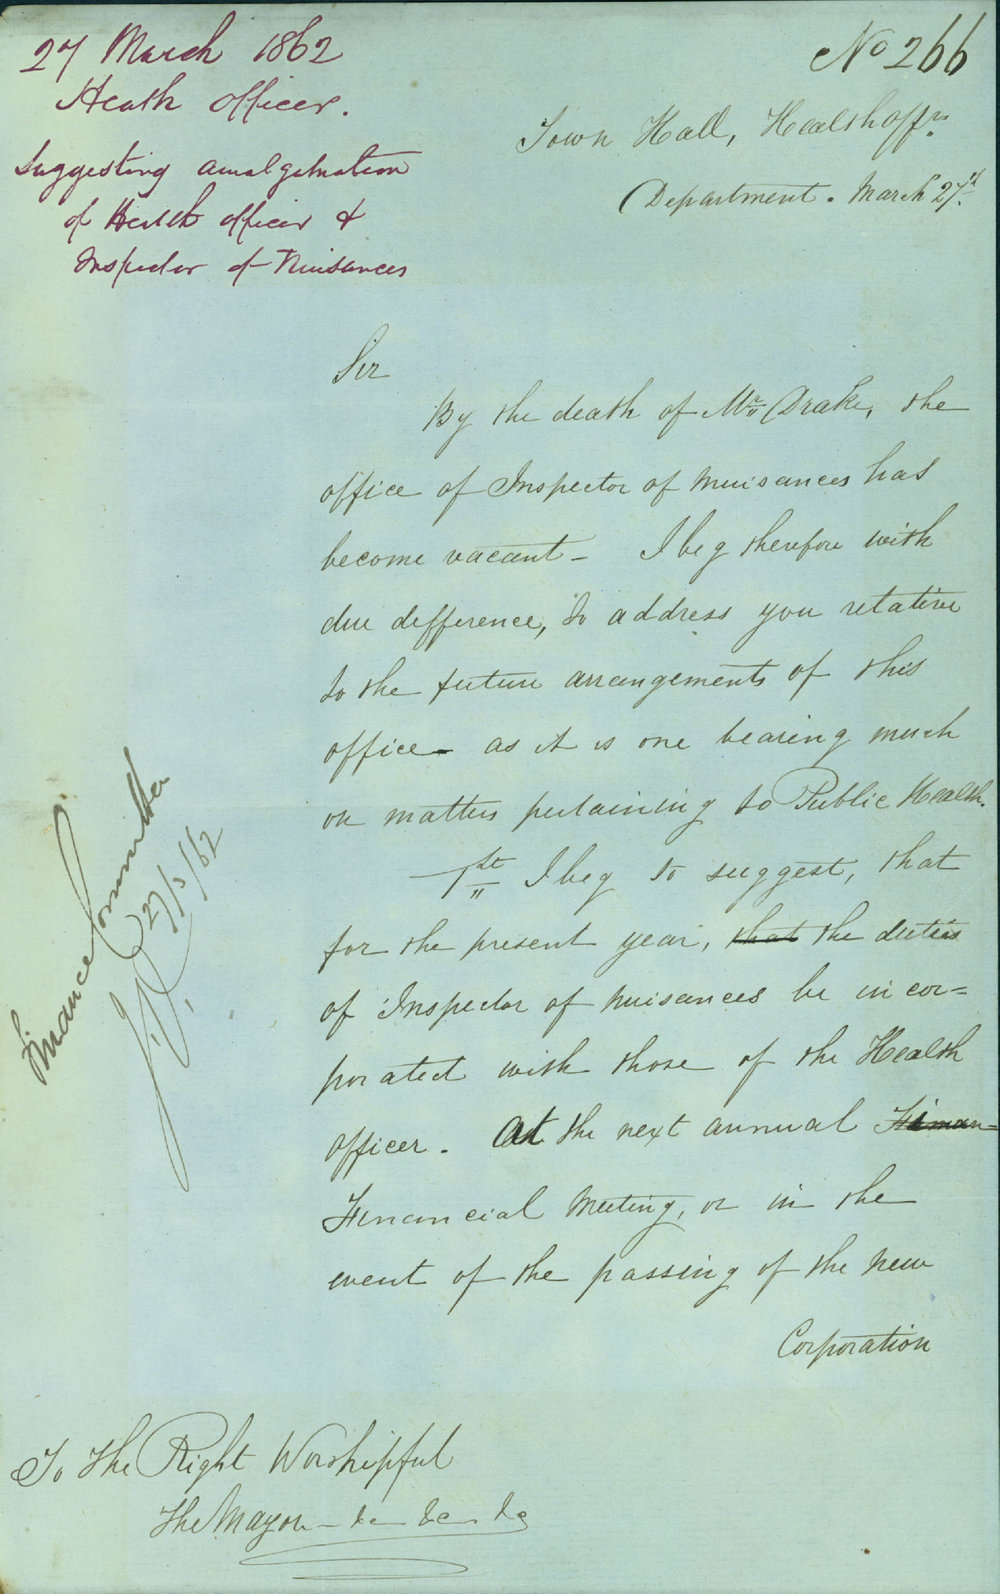 27 March 1862
Heath Officer.
Suggesting amalgamation
of Health Officer &
Inspector of Nuisances
No 266
Town Hall, Health Offr.
Department. March 27th.
Sir
By the death of Mr Drake, the
office of Inspector of nuisances has
become vacant - I beg therefore with
due defference, to address you relative
to the future arrangements of this
office - as it is one bearing much
on matters pertaining to Public Health.
1st I beg to suggest, that
for the present year, that the duties
of Inspector of nuisances be incor=
porated with those of the Health
officer. At the next annual Finan-
Financial Meeting, or in the
event of the passing of the new
Corporation
Finance Committee
27/3/62
To The Right Worshipful
The Mayor - &c &c &c